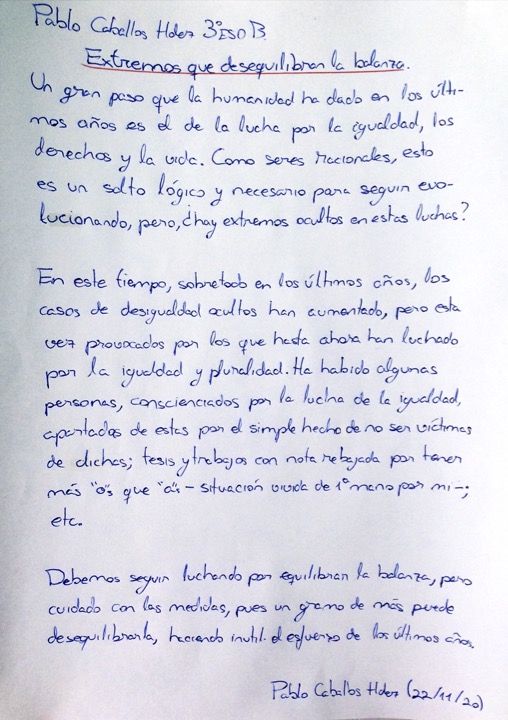 Pablo Caballos Hdez 3ºESO B
Extremos que desequilibran la balanza.
Un gran paso que la humanidad ha dado en los últi-
mos años es el de la lucha por la igualdad, los
derechos y la vida. Como seres racionales, esto
es un salto lógico y necesario para seguir evo-
lucionando, pero, ¿hay extremos ocultos en estas luchas?
En este tiempo, sobretodo en los últimos años, los
casos de desigualdad ocultos han aumentado, pero esta
vez provocados por los que hasta ahora han luchado
por la igualdad y pluralidad. Ha habido algunas
personas, conscienciados por la lucha de la igualdad,
apartados de estas por el simple hecho de no ser víctimas
de dichas; tesis y trabajos con nota rebajada por tener
más "o"s que "a"s - situación vivida de 1º mano por mi -;
etc.
Debemos seguir luchando por equilibrar la balanza, pero
cuidado con las medidas, pues un gramo de más puede
desequilibrarla, haciendo inutil el esfuerzo de los últimos años.
Pablo Caballos Hdez (22/11/20)